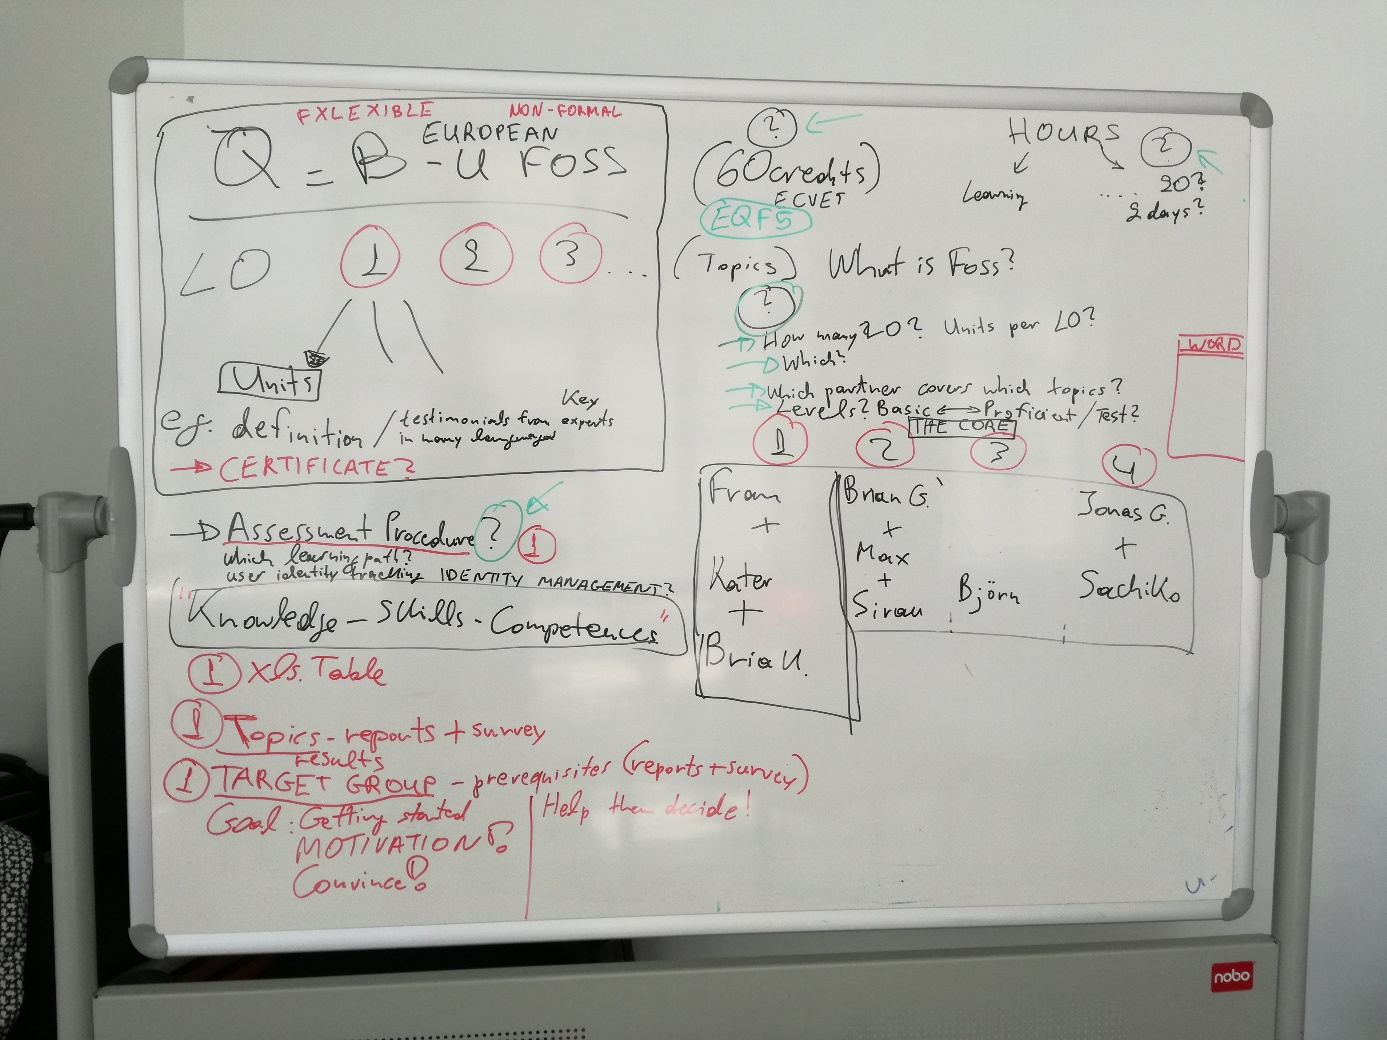 FXLEXIBLE NON-FORMAL
EUROPEAN
Q = B-U FOSS
LO 1 2 3 ...
Units
Key
eg. definition / testimonials from experts
in many languages
→ CERTIFICATE?
→ Assessment Procedure ? 1
which learning path?
user identity tracking IDENTITY MANAGEMENT?
"Knowledge - Skills - Competences"
1 xls. Table
1 Topics - reports + survey
results
1 TARGET GROUP - prerequisites (reports + survey)
Goal: Getting started
MOTIVATION!
Convince!
Help them decide!
?
(60 credits)
ECVET
EQF5
HOURS ?
Learning .... 20?
2 days?
(Topics) What is Foss?
?
→ How many LO? Units per LO?
→ Which?
→ Which partner covers which topics?
→ Levels? Basic ↔ Proficient / Test?
THE CORE
1 2 3 4
From
+
Kater
+
Bria U.
Brian G.
+
Max
+
Sirau
Björn
Jonas G.
+
Sachiko
WORD
nobo